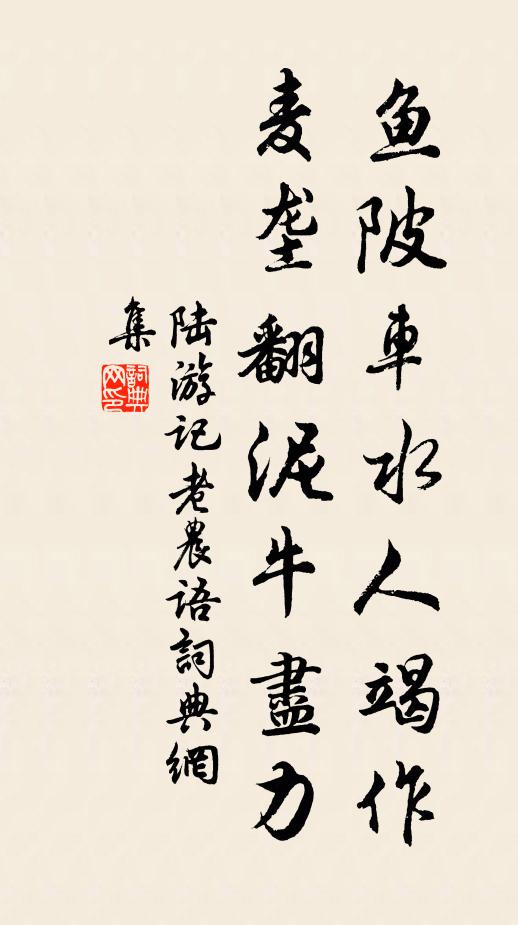 鱼陂車水人竭作
麦垄翻泥牛盡力
陆游记老農语詞典網
集
詞典
网印